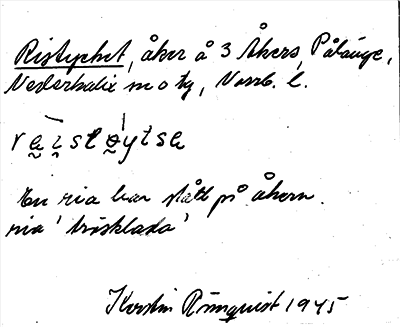 Ristycket, åker å 3 Åkers, Pålänge,
Nederkalix m o tg, Norrb. l.
En ria har stått på åkern.
ria 'trösklada'
Kerstin Rönnquist 1945